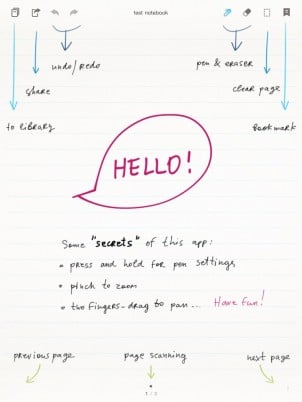 test notebook
undo/redo
pen & eraser
share
clear page
to library
bookmark
HELLO!
Some "secrets" of this app:
• press and hold for pen settings
• pinch to zoom
• two fingers-drag to pan... Have fun!
previous page
page scanning
next page
1 / 2